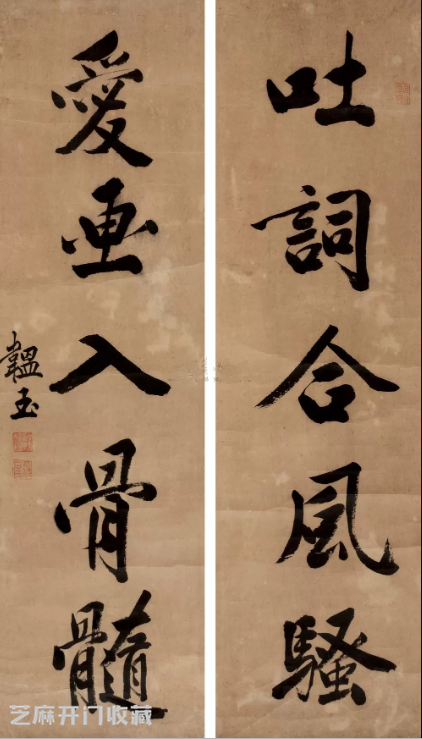 吐詞合風騷
愛画入骨髓
韞玉
芝麻开门收藏